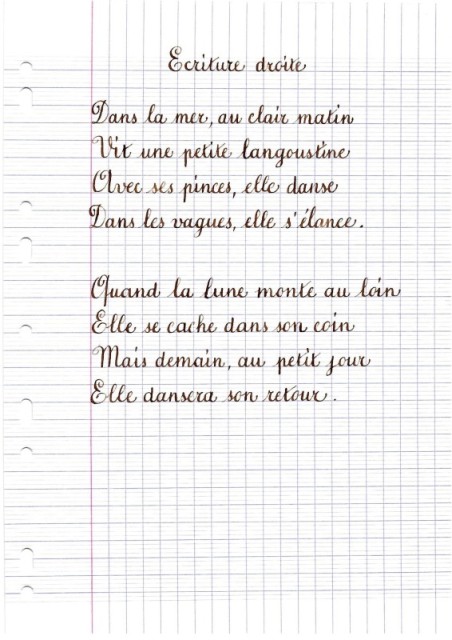 Ecriture droite
Dans la mer, au clair matin
Vit une petite langoustine
Avec ses pinces, elle danse
Dans les vagues, elle s'élance.
Quand la lune monte au loin
Elle se cache dans son coin
Mais demain, au petit jour
Elle dansera son retour.